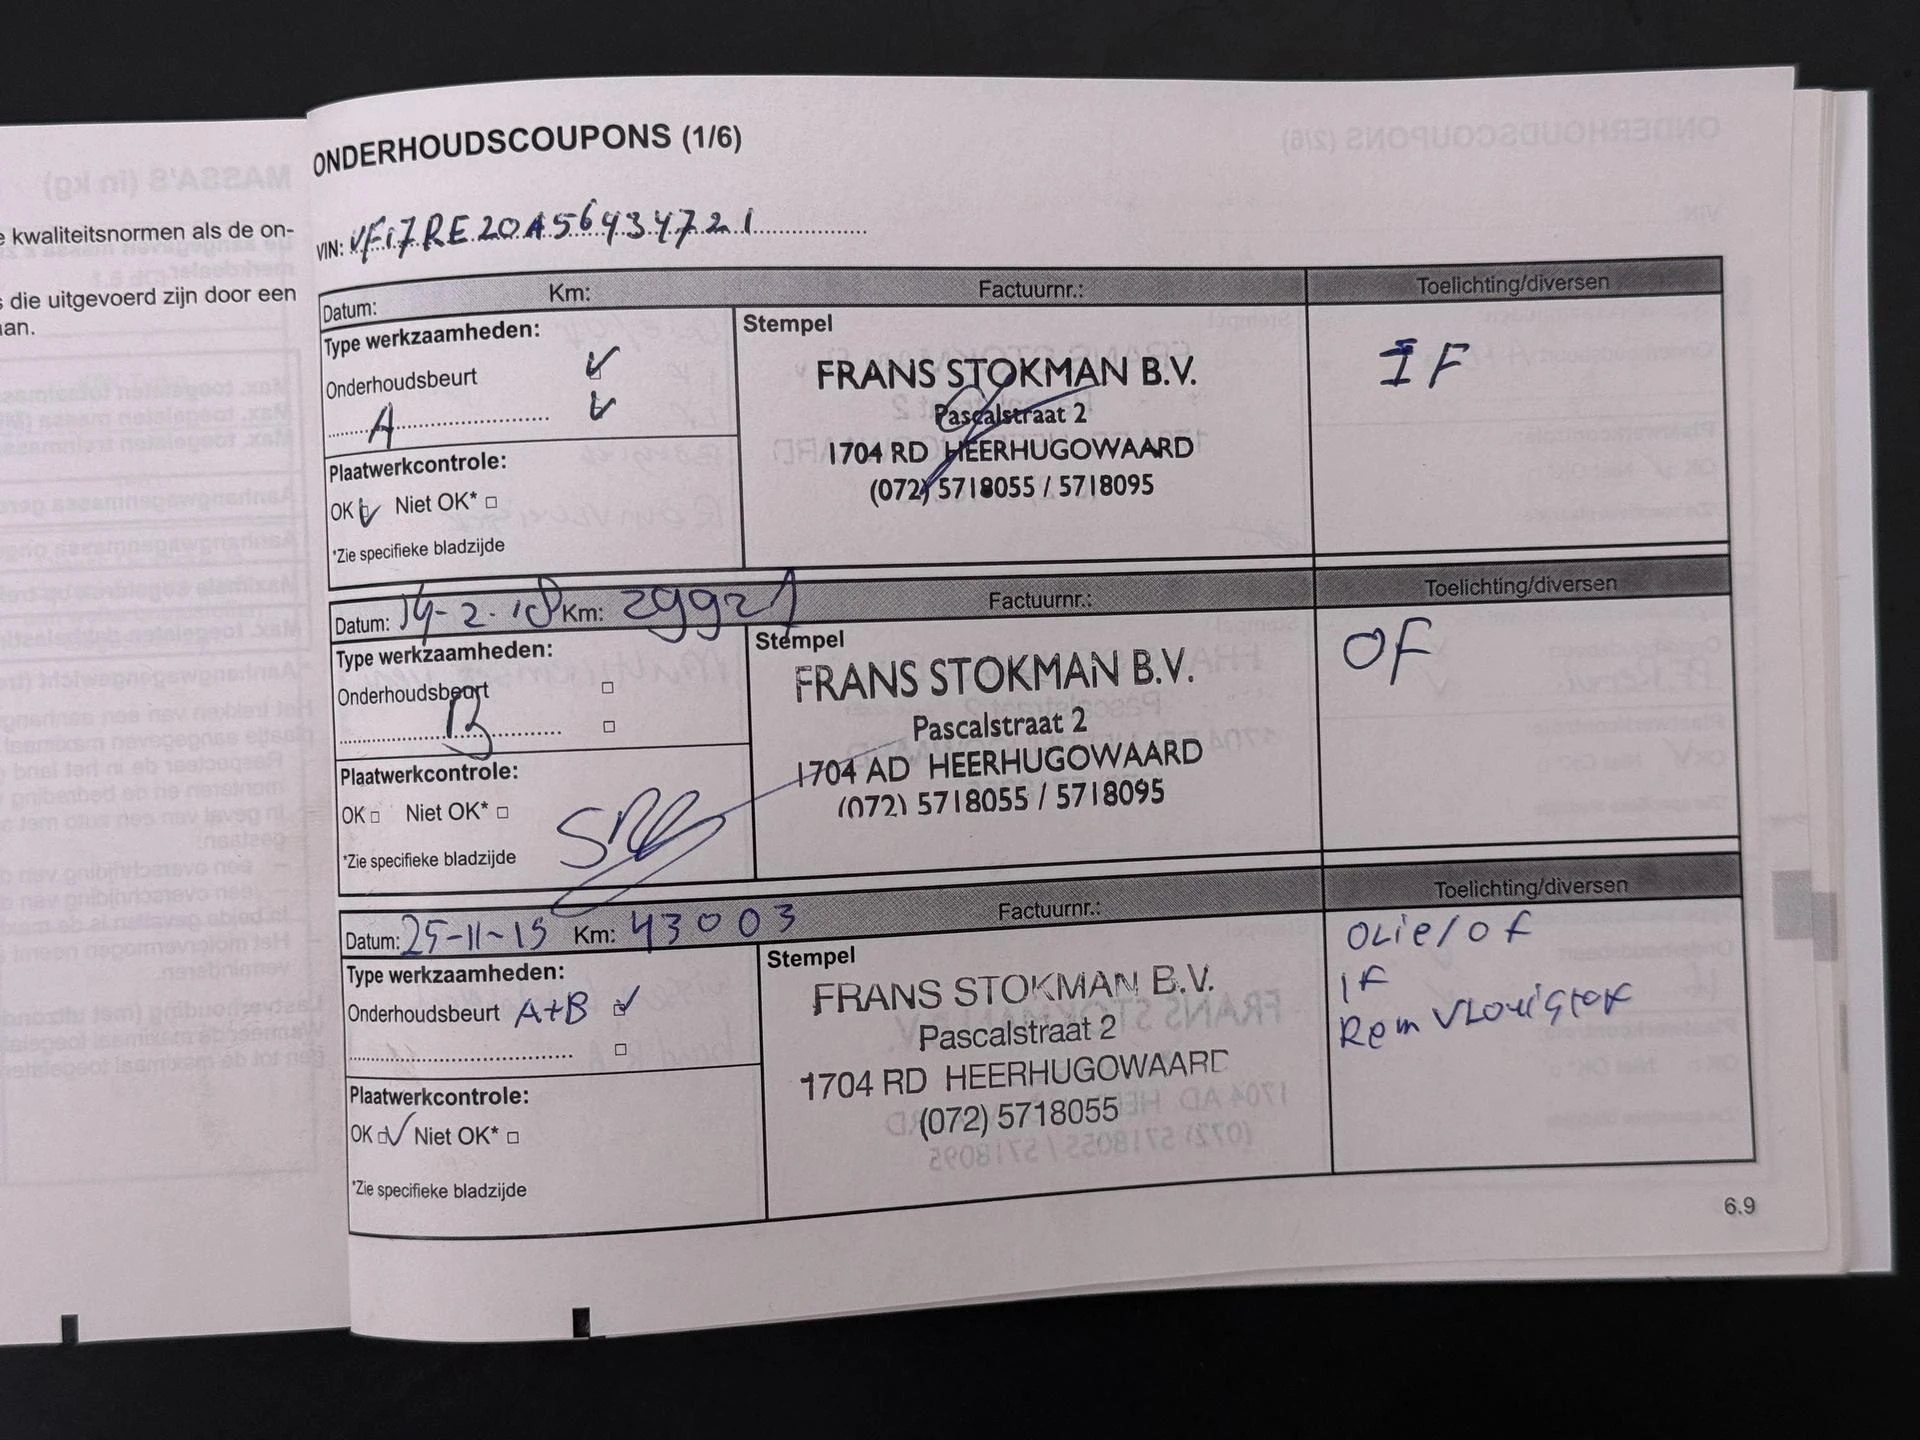 e kwaliteitsnormen als de on-
s die uitgevoerd zijn door een
aan.
ONDERHOUDSCOUPONS (1/6)
VIN: VF17RE20A56434721
Datum: Km: Factuurnr.: Toelichting/diversen
Type werkzaamheden:
Onderhoudsbeurt
A
Plaatwerkcontrole:
OK Niet OK*
*Zie specifieke bladzijde
Stempel
FRANS STOKMAN B.V.
Pascalstraat 2
1704 RD HEERHUGOWAARD
(072) 5718055 / 5718095
IF
Datum: 14-2-18 Km: 29921 Factuurnr.: Toelichting/diversen
Type werkzaamheden:
Onderhoudsbeurt
B
Plaatwerkcontrole:
OK Niet OK*
*Zie specifieke bladzijde
Stempel
FRANS STOKMAN B.V.
Pascalstraat 2
1704 AD HEERHUGOWAARD
(072) 5718055 / 5718095
OF
Datum: 25-11-19 Km: 43003 Factuurnr.: Toelichting/diversen
Type werkzaamheden:
Onderhoudsbeurt A+B
Plaatwerkcontrole:
OK Niet OK*
*Zie specifieke bladzijde
Stempel
FRANS STOKMAN B.V.
Pascalstraat 2
1704 RD HEERHUGOWAARD
(072) 5718055
OLie/OF
IF
Rem VLoeistof
6.9